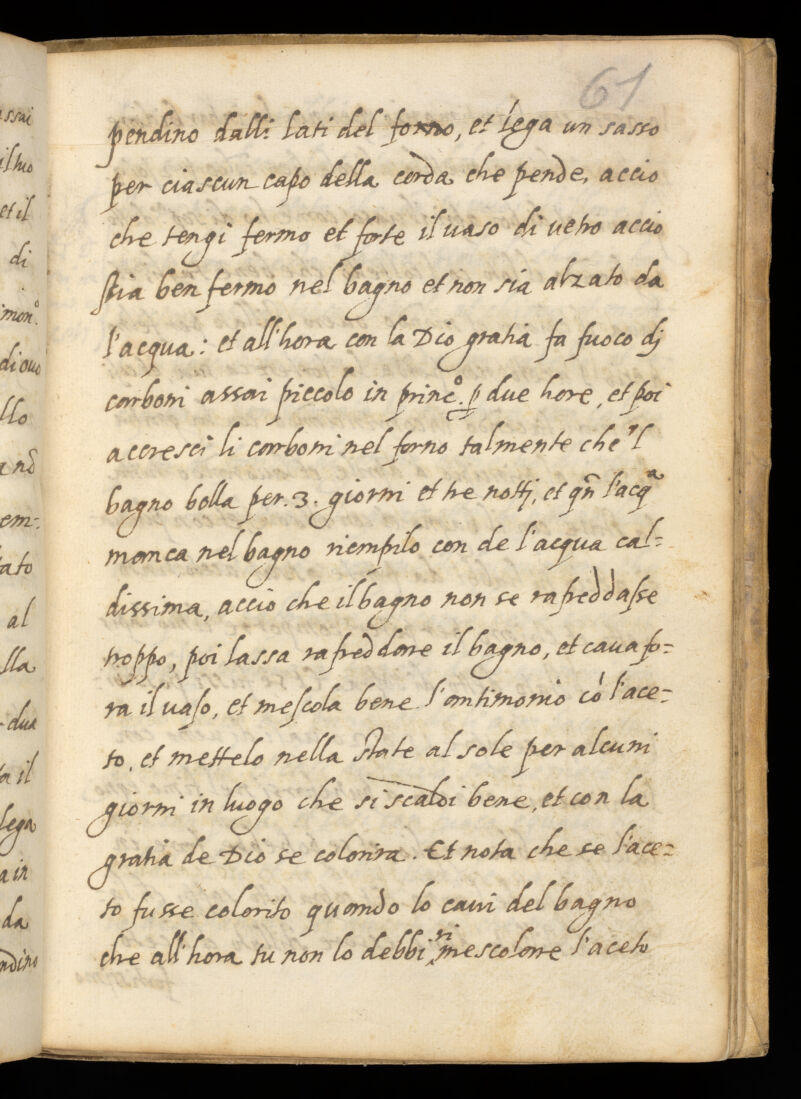 61
pendino dalli lati del forno, et lega un sasso
per ciascun capo della corda che pende, accio
che tengi fermo et forte il vaso di vetro accio
stia ben fermo nel bagno et non sia alzato da
l'acqua: et all'hora con la Dio gratia fa fuoco dj
carboni assai piccolo in princ.º p due hore, et poi
accresci li carboni nel forno talmente che'l
bagno bolla per .3. giorni et tre nottj, et qñ l'acqª
manca nel bagno riempilo con de l'acqua cal=
dissima, accio che il bagno non se rafreddasse
troppo, poi lassa rafreddare il bagno, et cava fo=
ra il vaso, et mescola bene l'antimonio cō l'ace=
to, et mettelo nella state al sole per alcuni
giorni in luogo che si scaldi bene, et con la
gratia de Dio se colorira. Et nota che se l'ace=
to fusse colorito quando lo cavi del bagno
che all'hora tu non lo debbi ri mescolare l'aceto
ssai
et il
di
imonº.
di ouo
llo
and
em:
tato
al
lla
dua
ta il
lega
a in
da
ndino